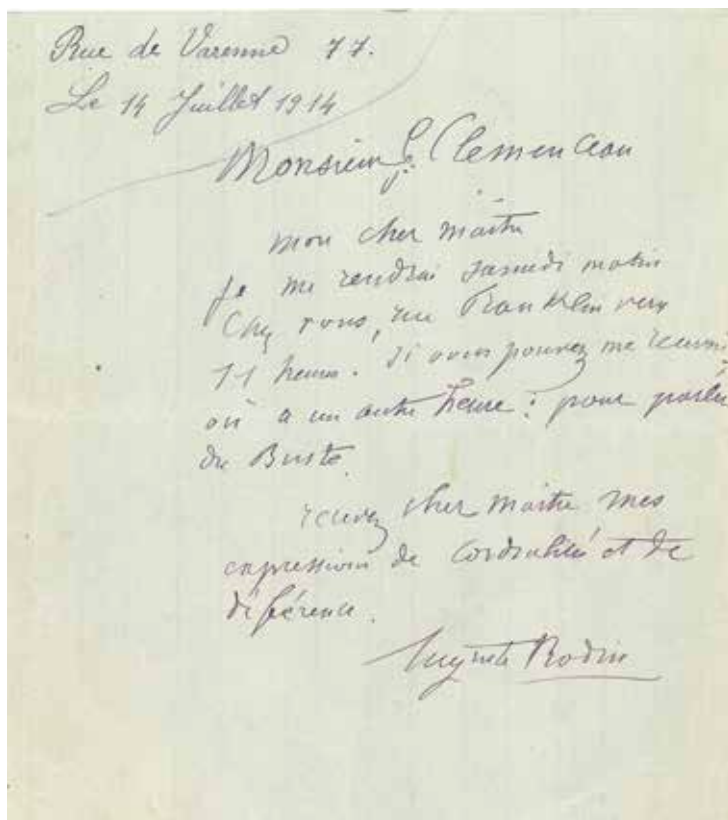 Rue de Varenne 77.
Le 14 Juillet 1914
Monsieur G. Clemenceau
mon cher maitre
je me rendrai samedi matin
Chez vous, rue Franklin vers
11 heures. Si vous pouvez me recevoir,
où a un autre heure : pour parler
du Buste.
recevez cher maitre mes
expressions de Cordialité et de
déférence.
Auguste Rodin